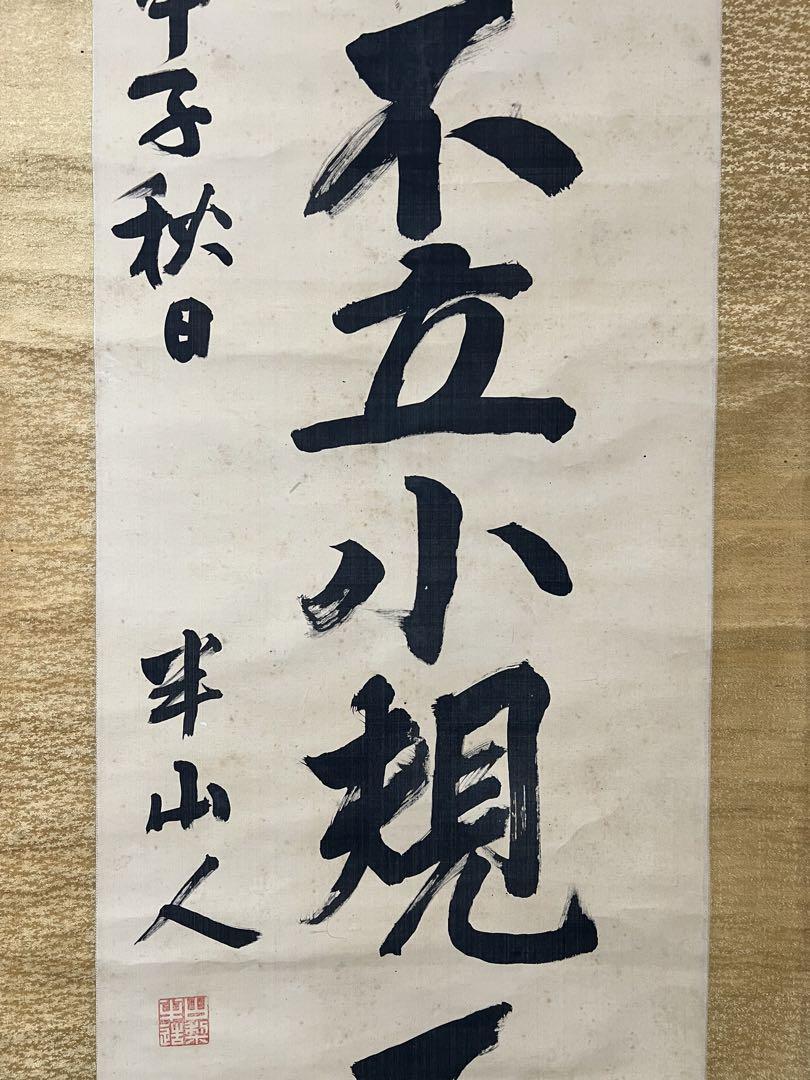 不立小規
甲子秋日 半山人